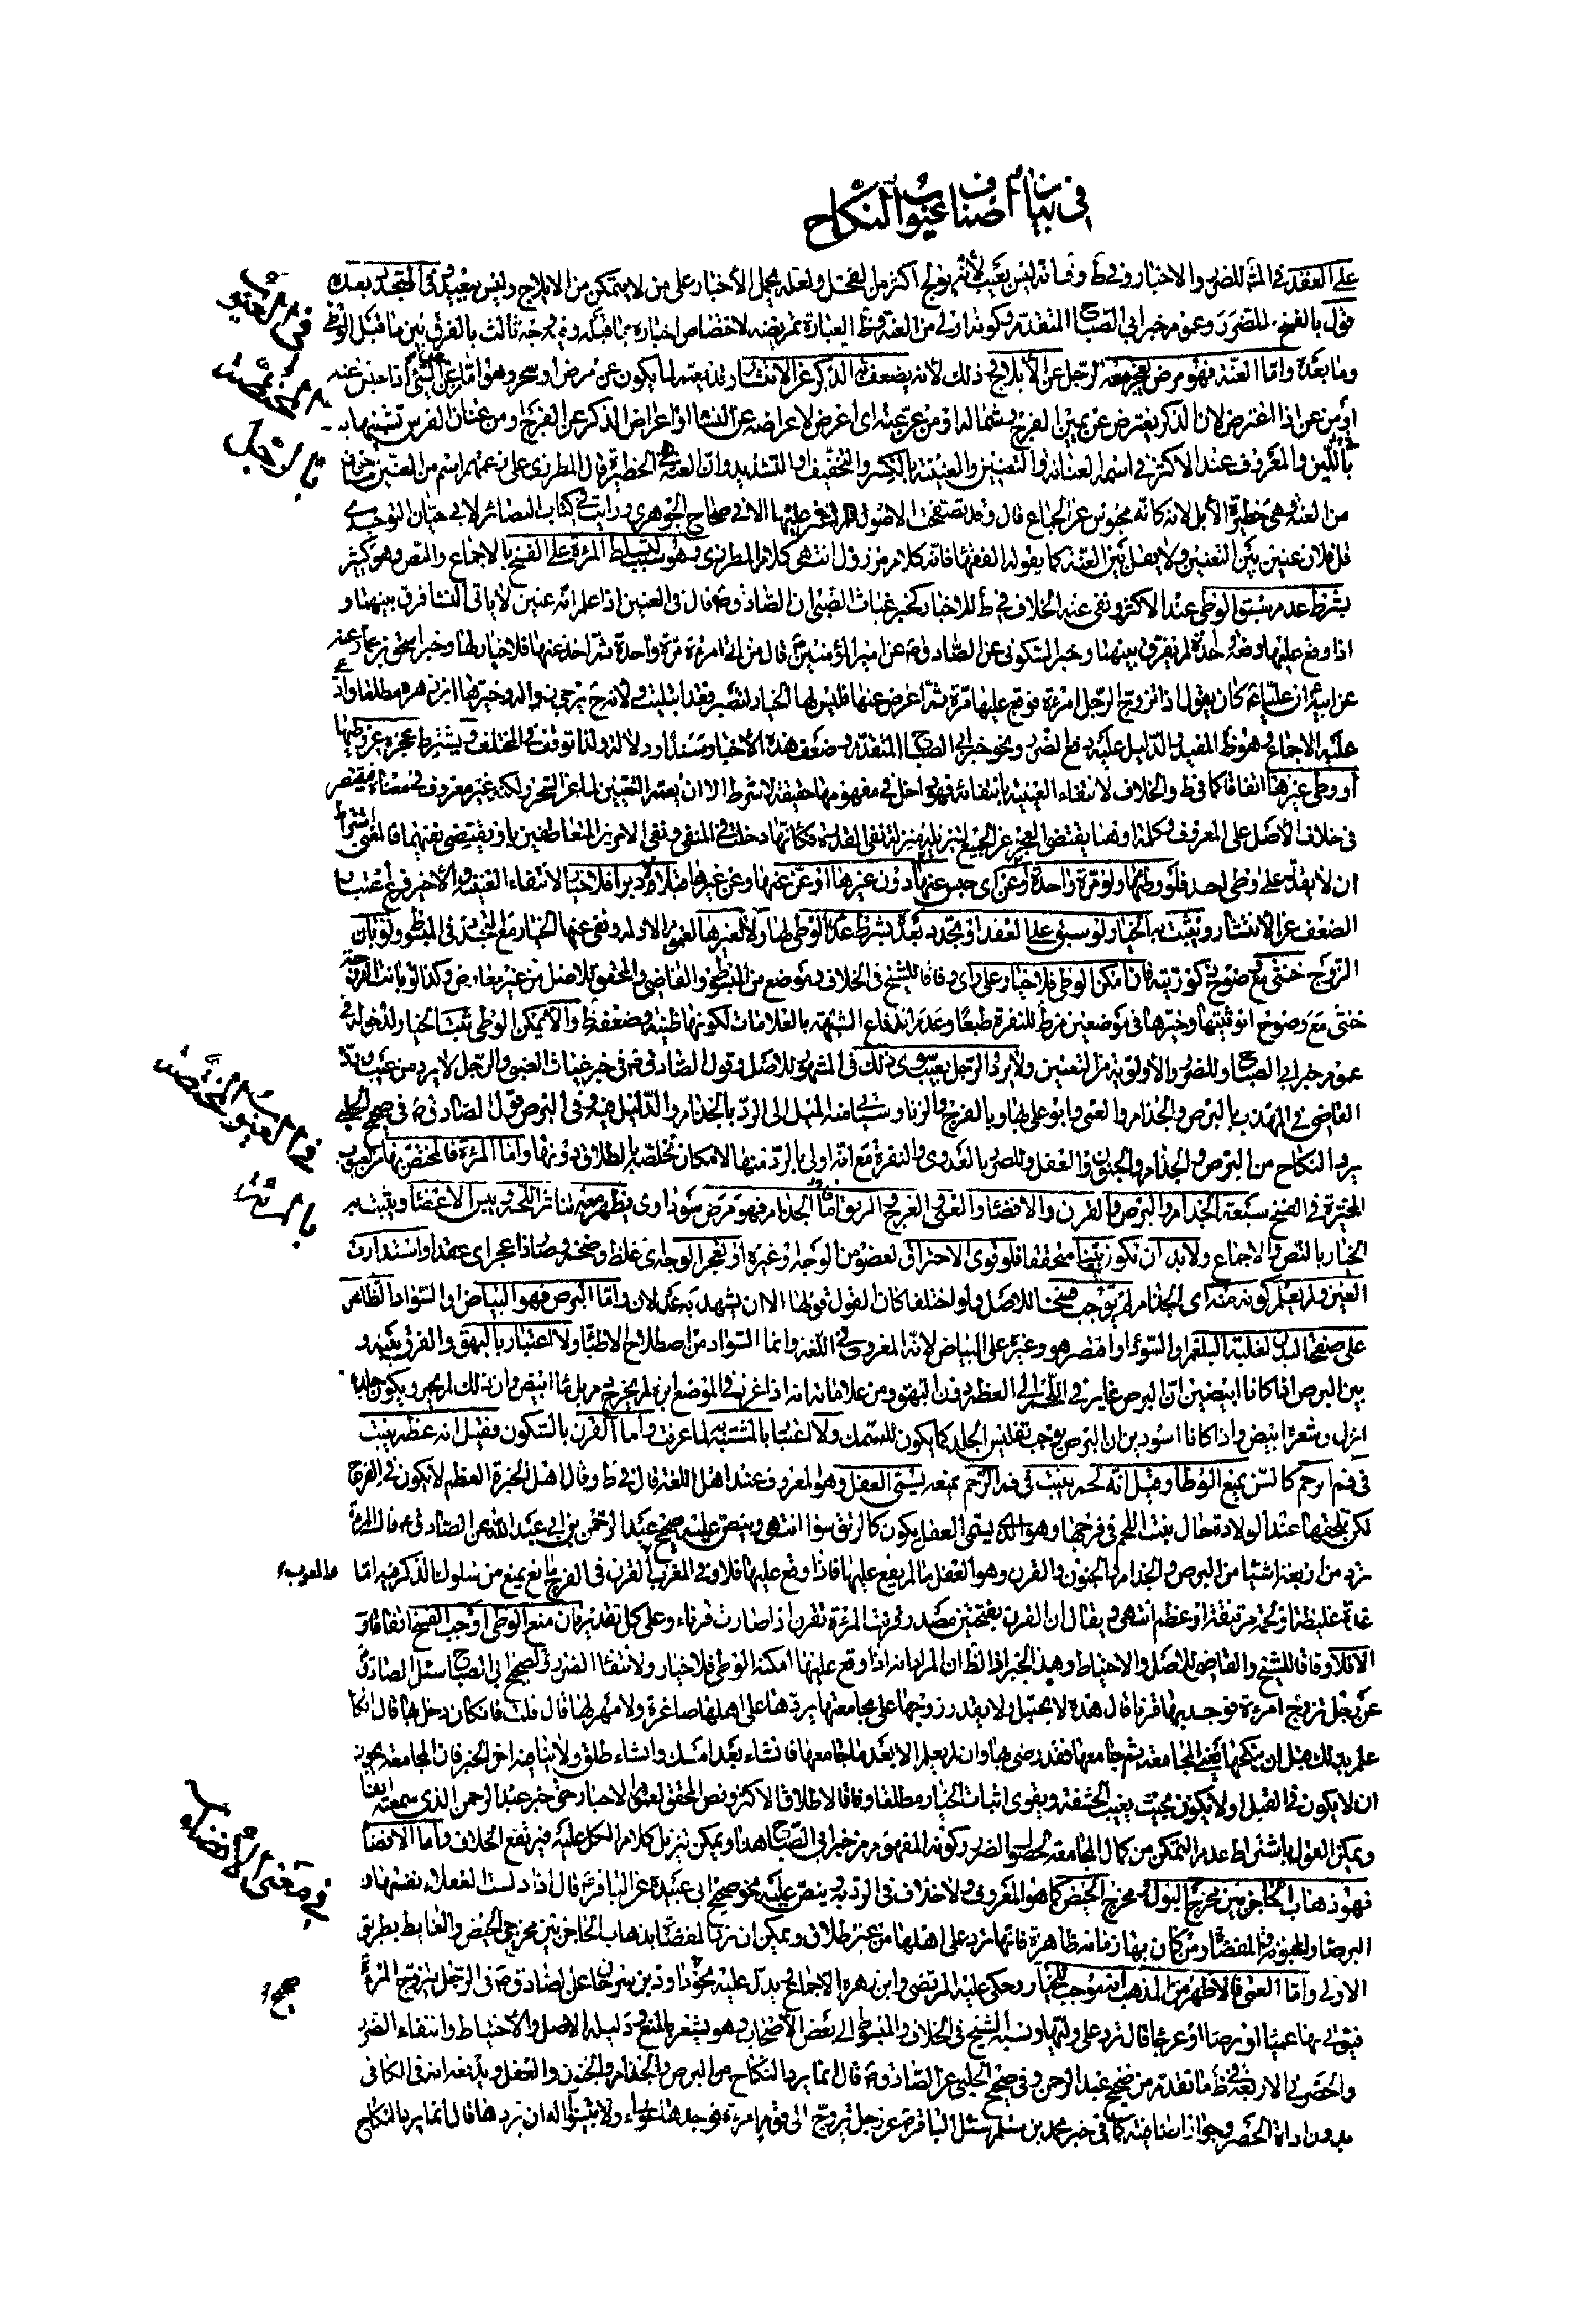 في بيان أصناف عيوب النكاح
على العقد في المش للضرر والاخبار وفي ط وف انه ليس بعيب لأنه يولج اكثر من الفحل ولعله يحمل الأخبار على من لا يتمكن من الايلاج وليس ببعيد وفي المتجدد بعد
قول بالفسخ للضرر وعموم خبر ابي الصباح المتقدم وكونه اولى من العنة وظ العبارة تمريضه لاختصاص اخباره بما قبله وفيه وجه ثالث بالفرق بين ما قبل الوطئ
وما بعده واما العنة فهو مرض يعجز معه الرجل عن الايلاج وذلك لأنه يضعف الذكر عن الانتشار
او من عن اذا اعترض لان الذكر يعترض عن يمين الفرج وشماله او من عن بمعنى اي اعرض لاعراضه عن النساء او اعراض الذكر عن الفرج او من عنان الفرس تشبيها به
في اللين والمعروف عند الاكثر في اسمه العنانة والتعنين والعنينة بالكسر والتخفيف او التشديد وان العنة الحظيرة قال المطرزي على زعمهم اسم من العنين
من العنة وهي حظيرة الأبل لانه كانه محبوس عن الجماع قال وقد تصفحت الاصول فلم اعثر عليها الا في صحاح الجوهري ورايت في كتاب البصائر لابي حيان التوحيدي
قل فلان عنين بين التعنين ولا يقل بين العنة كما يقوله الفقهاء فانه كلام مرذول انتهى كلام المطرزي وهو سبب لتسلط المرئة على الفسخ بالاجماع والنص وهو كثير
بشرط عدم سبق الوطي عند الاكثر ونفى عنه الخلاف في ط للاخبار كخبر غياث الضبي ان الصادق ع قال في العنين اذا علم انه عنين لا ياتي النساء فرق بينهما و
اذا وقع عليها وقعة واحدة لم يفرق بينهما وخبر السكوني عن الصادق ع عن امير المؤمنين ع قال من اتى امرءة مرة واحدة ثم اخذ عنها فلا خيار لها وخبر اسحق بن عمار عنه
عن ابيه ع ان عليا ع كان يقول اذا تزوج الرجل امرءة فوقع عليها مرة ثم اعرض عنها فليس لها الخيار لتصبر فقد ابتليت
عليه الاجماع وهو ظ المفيد والدليل عليه دفع الضرر ونحو خبر ابي الصباح المتقدم وضعف هذه الاخبار سندا او دلالة ولذا توقف في المختلف ويشترط عجزه عن وطئها
او وطي غيرها اتفاقا كما في ط والخلاف لانتفاء العنينة بانتفائه فهو داخل في مفهومها حقيقة لا شرط الا ان يعتبر التعنين
في خلاف الأصل على المعروف وكلمة او هنا يقتضي العجز عن الجميع لتنزيله منزلة نفي القدرة فكأنها دخلت في المنفي ونفي الامرين المتعاطفين باو يقتضي نفيهما فالمعنى اشتراط
ان لا يقدر على وطي احد فلو وطئها ولو مرة واحدة او عن اي حبس عنها دون غيرها او عن عنها وعن غيرها قبلا لا دبرا فلا خيار لانتفاء العنينة والأخير فرع اعتبار
الضعف عن الانتشار ويثبت به الخيار لو سبق على العقد او تجدد بعده بشرط عدم الوطي لها ولا لغيرها لعموم الادلة ونفى عنها الخيار مع التجدد في المبسوط ولو بان
الزوج خنثى مع وضوح ذكوريته فان امكن الوطي فلا خيار على راى وفاقا للشيخ في الخلاف وموضع من المبسوط والقاضي والمحقق للاصل من غير معارض وكذا لو بانت الزوجة
خنثى مع وضوح انوثيتها وخيرها في موضعين من ط للنفرة طبعا وعدم اندفاع الشبهة بالعلامات لكونها ظنية وضعفه ظ والا يمكن الوطي ثبت الخيار لدخوله في
عموم خبر ابي الصباح وللضرر والأولوية من التعنين ولا يرد الرجل بعيب سوى ذلك في المشهور للاصل وقول الصادق ع في خبر غياث الضبي والرجل لا يرد من عيب
القاضي في المهذب بالبرص والجذام والعمى وابو علي بها وبالعرج والزنا وسيأتي منه الميل الى الرد بالجذام والدليل فيه وفي البرص قول الصادق ع في صحيح الحلبي
يرد النكاح من البرص والجذام والجنون والعفل وللضرر بالعدوى والنفرة مع انه اولى بالرد منها لامكان تخلصه بالطلاق دونها واما المرئة فالمختص بها من العيوب
المجوزة في الفسخ سبعة الجذام والبرص والقرن والافضاء والعمى والعرج والرتق اما الجذام فهو مرض سوداوي يظهر معه تناثر اللحم ويبس الأعضاء ويثبت به
الخيار بالنص والاجماع ولا بد ان تكون بينا متحققا فلو قوي الاحتراق لعضو من الوجه او غيره او تعجر الوجه اي غلظ وضخم وصار ذا عجر اي عقد او استدارت
العين ولم يعلم كونه منه اي الجذام لم يوجب فسخا للاصل ولو اختلفا كان القول قولها الا ان يشهد به عدلان واما البرص فهو البياض او السواد الظاهر
على صفحة البدن لغلبة البلغم او السوداء واقتصر هو وغيره على البياض لانه المعروف في اللغة وانما السواد من اصطلاح الاطباء ولا اعتبار بالبهق والفرق بينه و
بين البرص اذا كانا ابيضين ان البرص غاير في اللحم الى العظم دون البهق ومن علاماته انه اذا غرز في الموضع ابرة لم يخرج دم بل ماء ابيض وان ذلك لم يحمر ويكون جلده
انزل وشعره ابيض واذا كانا اسودين ان البرص يوجب تفليس الجلد كما يكون للسمك ولا اعتبار بالمشتبه لما عرفت واما القرن بالسكون فقيل انه عظم ينبت
في فم الرحم كالسن يمنع الوطأ وقيل انه لحم ينبت في فم الرحم يمنعه يسمى العفل وهو المعروف عند اهل اللغة قال في ط وقال اهل الخبرة العظم لا يكون في الفرج
لكن يلحقها عند الولادة حال ينبت اللحم في فرجها وهو الذي يسمى العفل يكون كالرتق سواء انتهى وينص عليه صحيح عبد الرحمن بن ابي عبد الله عن الصادق ع قال المرأة
ترد من اربعة اشياء من البرص والجذام والجنون والقرن وهو العفل ما لم يقع عليها فاذا وقع عليها فلا وفي المغرب القرن في الفرج مانع يمنع من سلوك الذكر فيه اما
غدة غليظة او لحمة مرتتقة او عظم انتهى ويقال ان القرن بفتحتين مصدر قرنت المرئة تقرن اذا صارت قرناء وعلى كل تقدير فان منع الوطي اوجب الفسخ اتفاقا و
الا فلا وفاقا للشيخ والقاضي للاصل والاحتياط وهذا الخبر اذ الظ ان المراد انه اذا وقع عليها امكنه الوطي فلا خيار ولانتفاء الضرر والصحيح ابي الصباح سئل الصادق ع
عن رجل تزوج امرءة فوجد بها قرنا قال هذه لا تحبل ولا يقدر زوجها على مجامعتها يردها على اهلها صاغرة ولا مهر لها قال قلت فان كان دخل بها قال ان كان
علم بذلك قبل ان ينكحها يعني المجامعة ثم جامعها فقد رضي بها وان لم يعلم الا بعد ما جامعها فان شاء بعد امسك وان شاء طلق ولا ينافيه اخر الخبر فان المجامعة يجوز
ان لا يكون في القبل او لا يكون بحيث يغيب الحشفة ويقوى اثبات الخيار مطلقا وفاقا لاطلاق الاكثر ونص المحقق لعموم الاخبار حتى خبر عبد الرحمن الذي سمعته ايضا
ويمكن القول باشتراط عدم التمكن من كمال المجامعة لحصول الضرر وكونه المفهوم من خبر ابي الصباح هذا ويمكن تنزيل كلام الكل عليه فيرتفع الخلاف واما الافضاء
فهو ذهاب الحاجز بين مخرج البول ومخرج الحيض كما هو المعروف ولا خلاف في الرد به وينص عليه نحو صحيح ابي عبيدة عن الباقر ع قال اذا دلست العفلاء نفسها و
البرصاء والمجنونة والمفضاة ومن كان بها زمانة ظاهرة فانها ترد على اهلها من غير طلاق ويمكن ان ترد المفضاة بذهاب الحاجز بين مخرجي الحيض والغايط بطريق
الاولى واما العمى فالاظهر من المذهب انه موجب للخيار وحكى عليه المرتضى وابن زهرة الاجماع ويدل عليه نحو داود بن سرحان عن الصادق ع في الرجل يتزوج المرءة
فيؤتى بها عمياء او برصاء او عرجاء قال ترد على وليها ونسبه الشيخ في الخلاف والمبسوط الى بعض الأصحاب وهو يشعر بالمنع ودليله الاصل والاحتياط وانتفاء الضرر
والحصر في الاربعة في ظ ما تقدم من صحيح عبد الرحمن وفي صحيح الحلبي عن الصادق ع قال انما يرد النكاح من البرص والجذام والجنون والعفل ويدفعه انه في الكافي
بدون اداة الحصر وجواز انه كما في خبر محمد بن مسلم سئل الباقر ع عن رجل تزوج الى قوم امرءة فوجدها عوراء ولم يبينوا له ان يردها قال انما يرد النكاح
في العيوب
المختصة
بالرجل
في العيوب المختصة
بالمرئة
في معنى الافضاء
صحيح